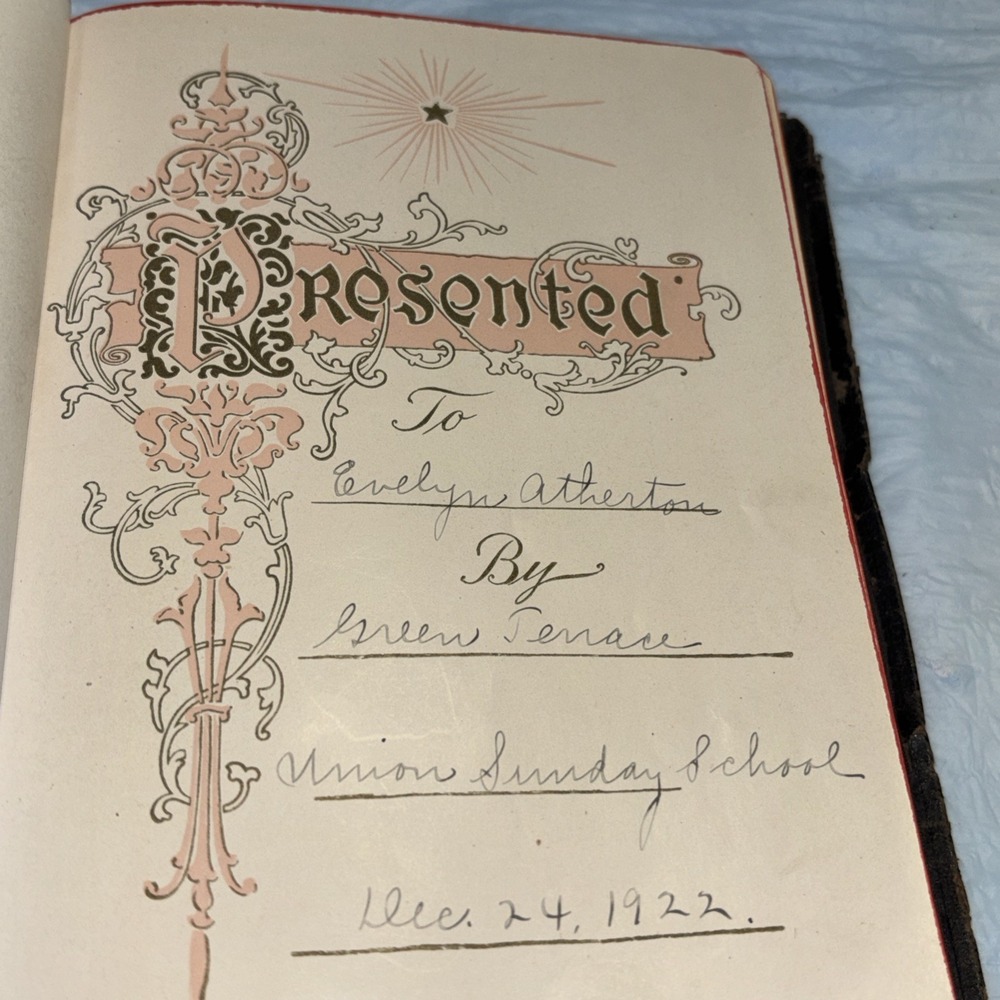 Presented
To
Evelyn Atherton
By
Green Terrace
Union Sunday School
Dec. 24, 1922.